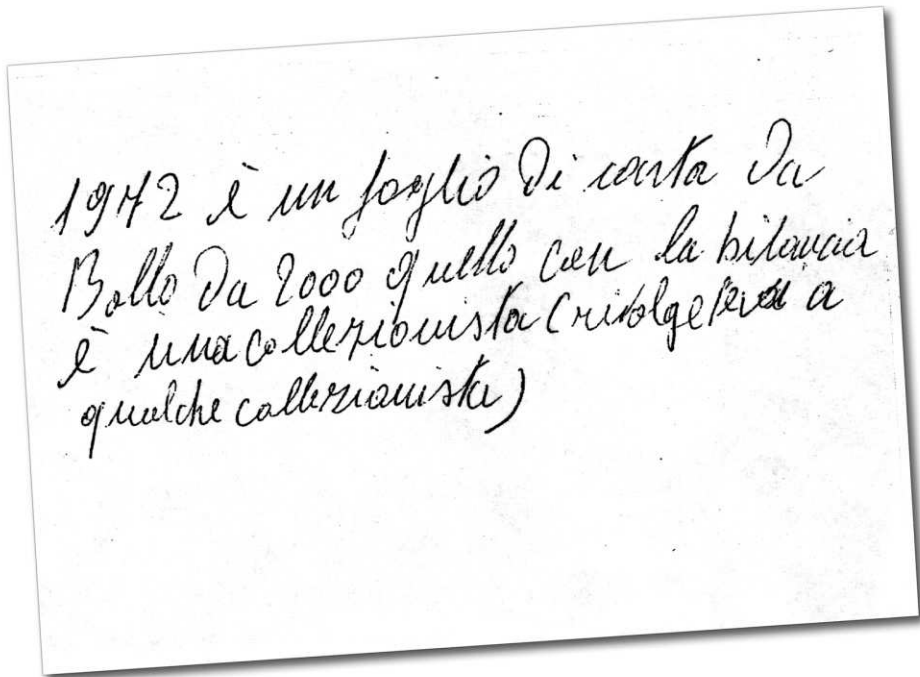 1972 è un foglio di carta da
Bollo da 2000 quello con la bilancia
è una collezionista (rivolgetevi a
qualche collezionista)